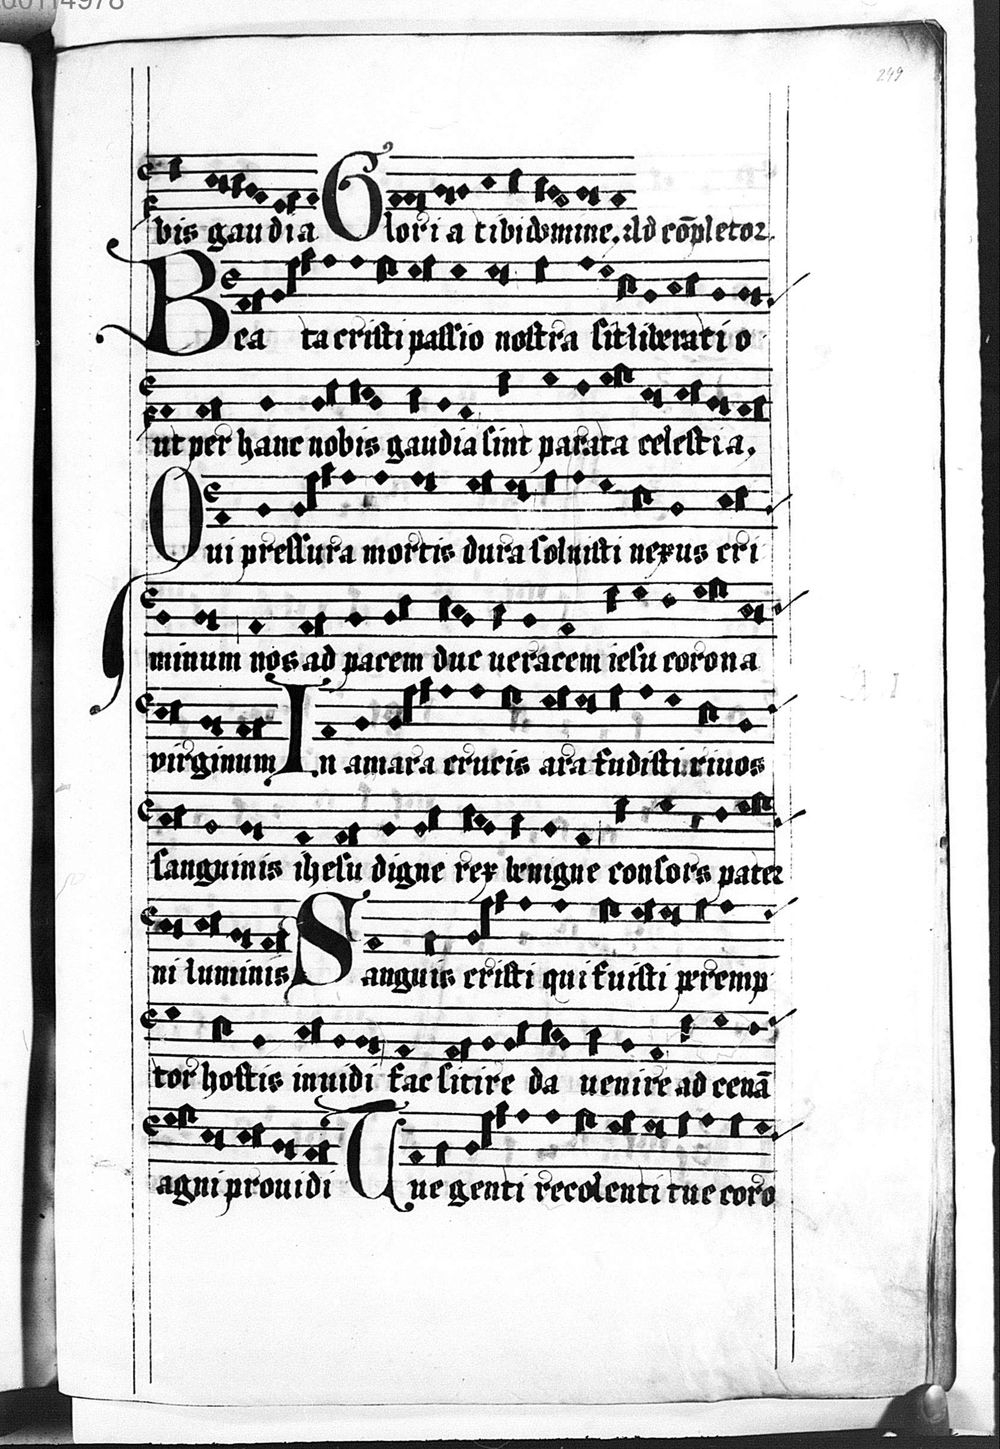 00114978
249
bis gaudia Gloria tibi domine. Ad cōpletor
Bea ta cristi passio nostra sit liberati o
ut per hanc nobis gaudia sint parata celestia.
Qui pressura mortis dura soluisti nexus cri
minum nos ad pacem duc ueracem iesu corona
virginum In amara crucis ara fudisti riuos
sanguinis ihesu digne rex benigne consors pater
ni luminis Sanguis cristi qui fuisti peremp
tor hostis inuidi fac sitire da uenire ad cenā
agni prouidi Tue genti recolenti tue coro